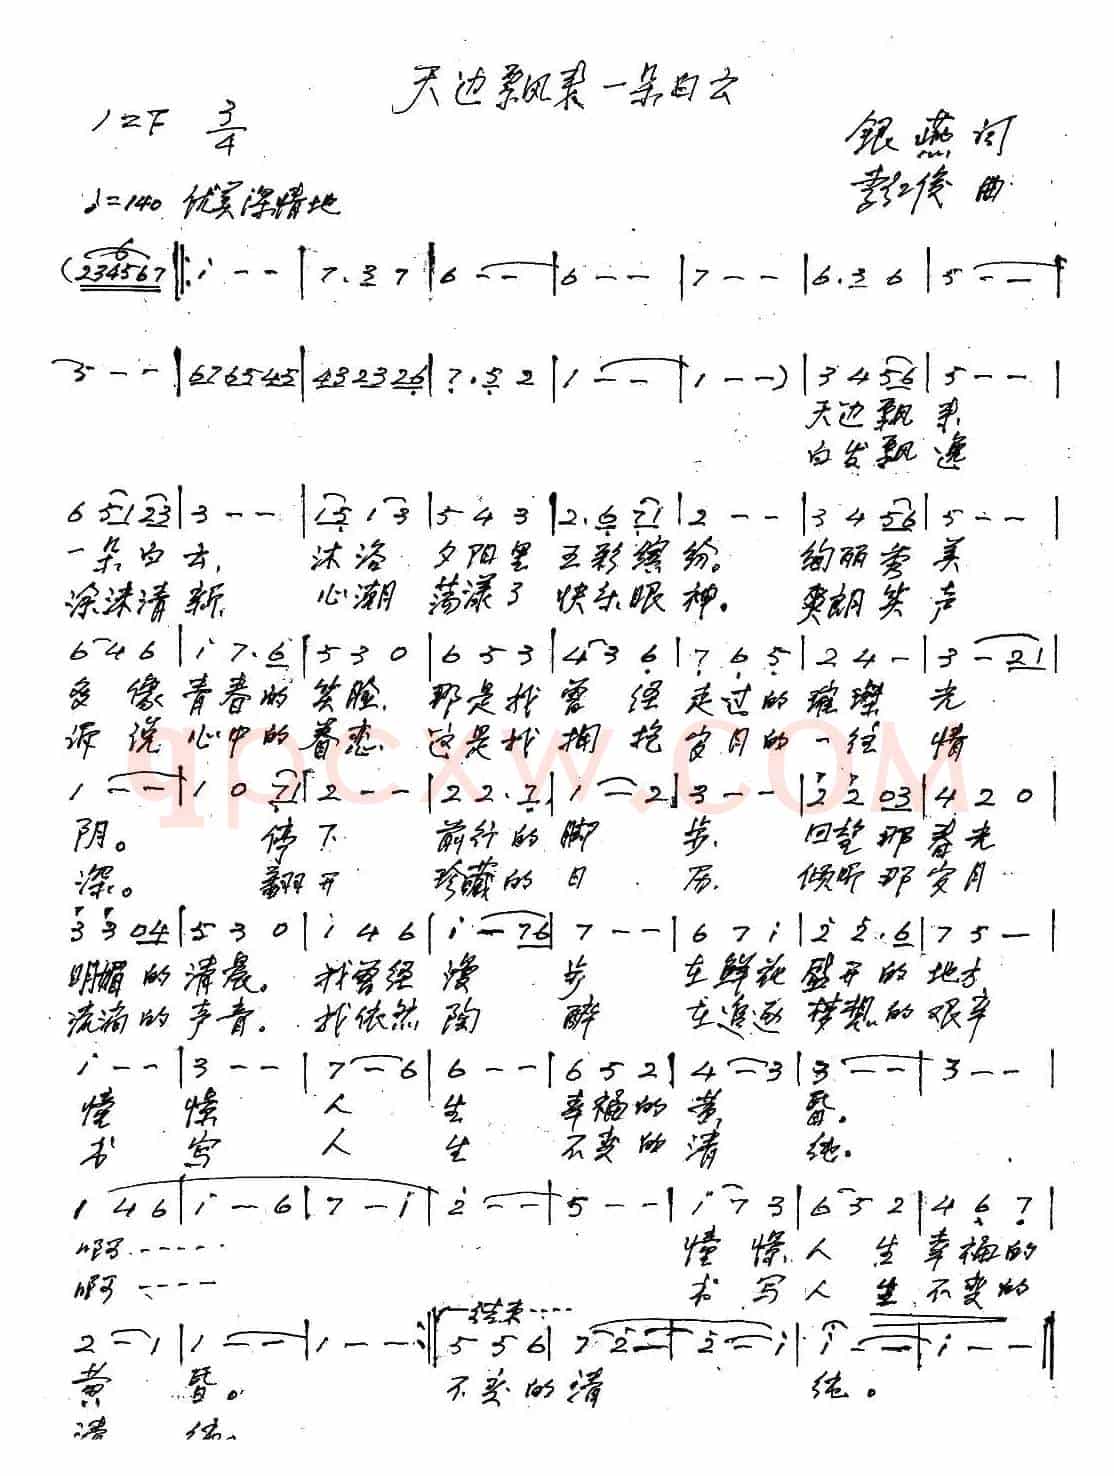 天边飘来一朵白云
1=F 3/4
银燕 词
彭红俊 曲
♩=140 优美深情地
(234567 |: i - - | 7. 3 7 | 6 - - | 6 - - | 7 - - | 6. 3 6 | 5 - - |
5 - - | 676545 | 432326 | 7. 5 2 | 1 - - | 1 - -) | 3 4 56 | 5 - - |
天边飘来
白发飘逸
6 5123 | 3 - - | 15 1 3 | 5 4 3 | 2. 6 71 | 2 - - | 3 4 56 | 5 - - |
一朵白云, 沐浴 夕阳里 五彩缤纷。 绚丽秀美
涂沫清新, 心潮 荡漾了 快乐眼神。 爽朗笑声
6 4 6 | i 7. 6 | 5 3 0 | 6 5 3 | 4 3 6 | 7 6 5 | 2 4 - | 3 - 21 |
多像 青春的 笑脸, 那是我 曾经 走过的 璀璨 光
诉说 心中的 眷恋, 这是我 拥抱 岁月的 一往 情
1 - - | 1 0 71 | 2 - - | 2 2. 7 | 1 - 2 | 3 - - | 2 2 03 | 4 2 0 |
阴。 停下 前行的 脚步, 回望那春光
深。 翻开 珍藏的 日历, 倾听那岁月
3 3 04 | 5 3 0 | i 4 6 | i - 76 | 7 - - | 6 7 i | 2 2. 6 | 7 5 - |
明媚的清晨。 我曾经 漫步 在鲜花 盛开的 地方
流淌的声音。 我依然 陶醉 在追逐 梦想的 艰辛
i - - | 3 - - | 7 - 6 | 6 - - | 6 5 2 | 4 - 3 | 3 - - | 3 - - |
憧憬 人生 幸福的 黄昏。
书写 人生 不变的 清纯。
1 4 6 | i - 6 | 7 - i | 2 - - | 5 - - | i 7 3 | 6 5 2 | 4 6 7 |
啊 ...... 憧憬人生幸福的
啊 ...... 书写人生不变的
结束
2 - 1 | 1 - - | 1 - - :| 5 5 6 | 7 2 - | 2 - i | i - - | i - - ||
黄昏。 不变的清纯。
清纯。
qpcxw.com